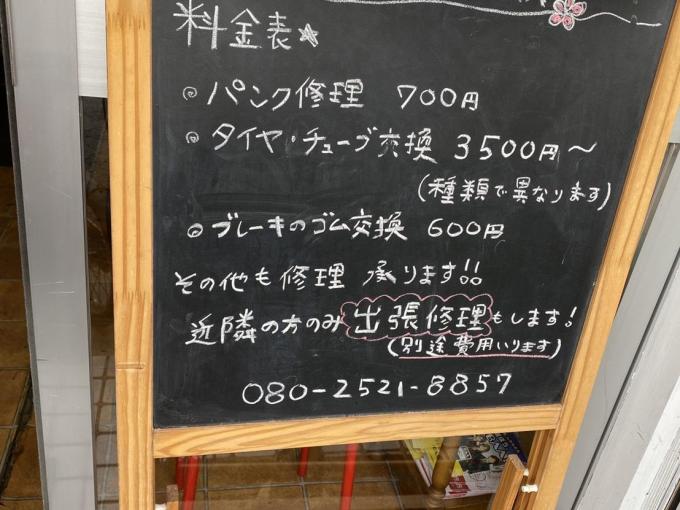 料金表☆
◎ パンク修理 700円
◎ タイヤ・チューブ交換 3500円〜
(種類で異なります)
◎ ブレーキのゴム交換 600円
その他も修理 承ります!!
近隣の方のみ 出張修理もします!
(別途費用いります)
080-2521-8857